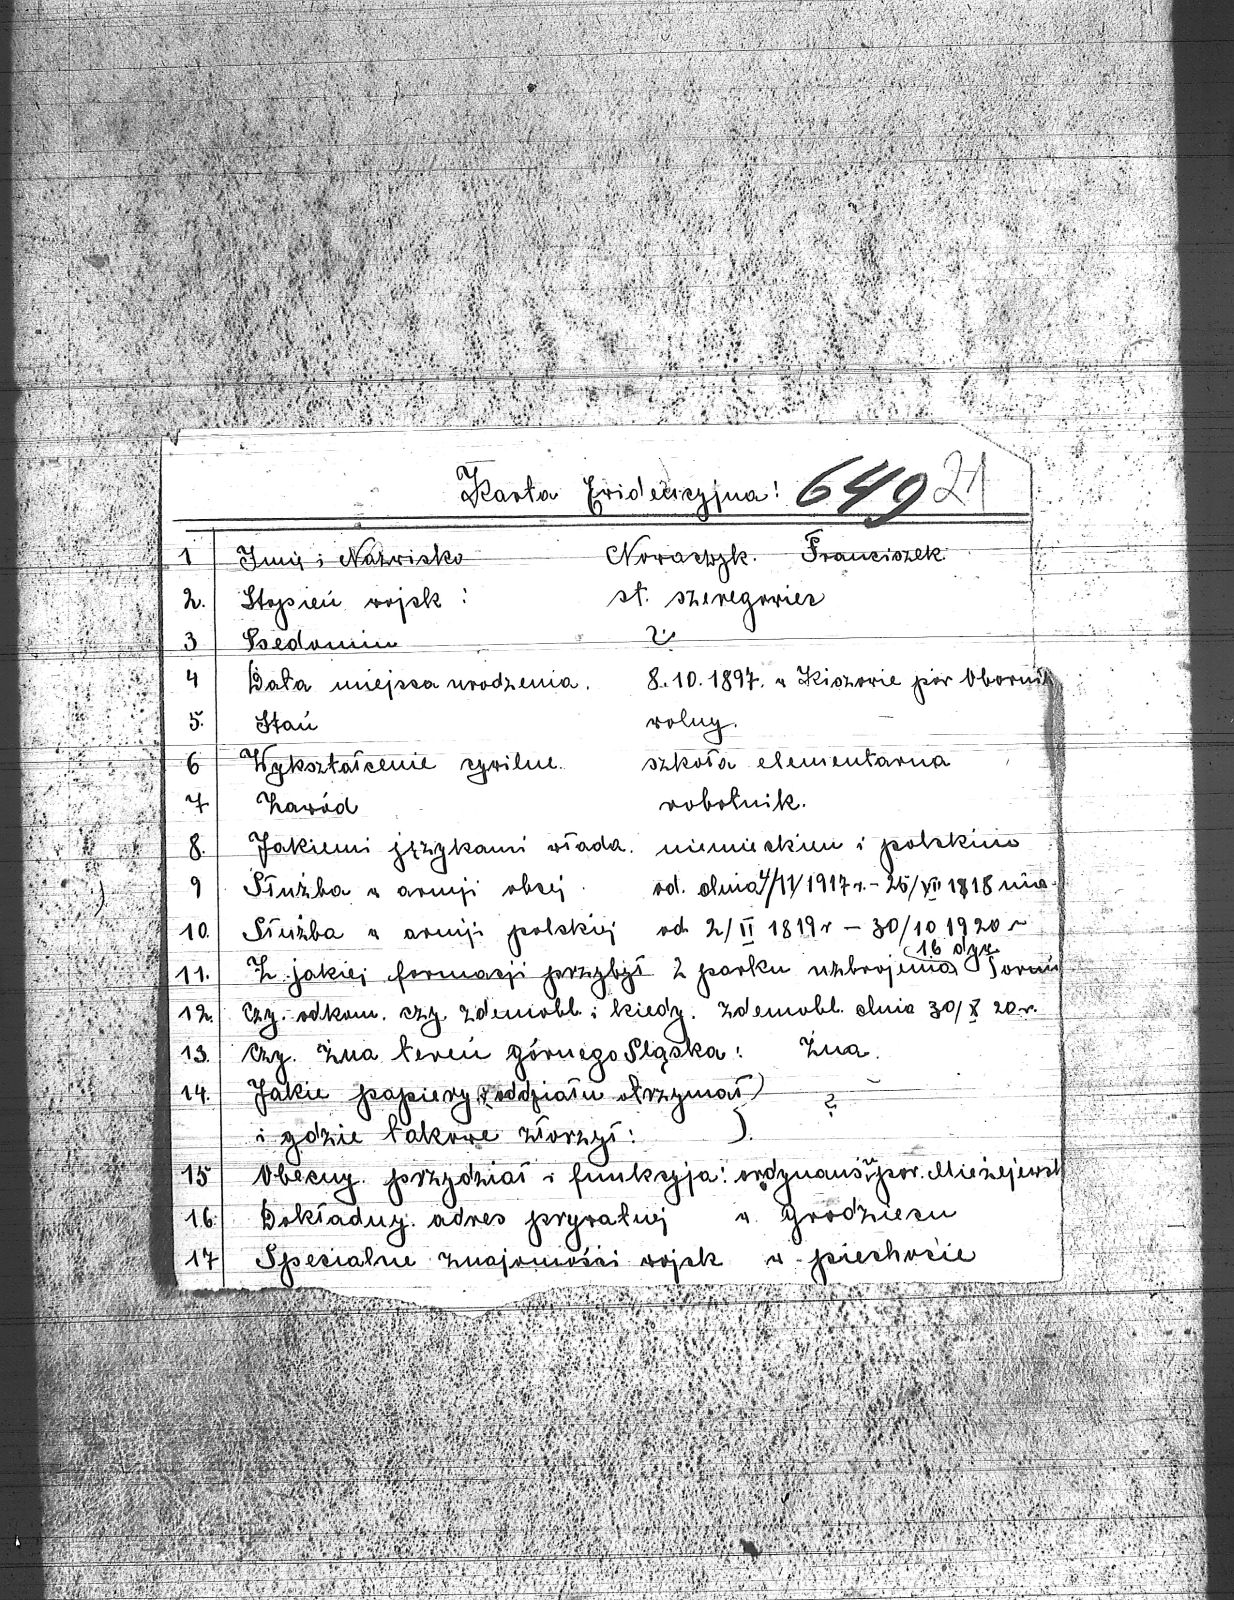 Karta Ewidencyjna! 649 21
1 Imię i Nazwisko Nowaczyk. Franciszek
2. Stopień wojsk: st. szeregowiec
3 Psedonim ?
4 Data miejsca urodzenia. 8.10.1897. w Kiszewie pow Oborni
5. Stan wolny.
6 Wykształcenie cywilne. szkoła elementarna
7 Zawód robotnik.
8. Jakiemi językami włada. niemieckiem i polskiem
9 Służba w armji obcej od. dnia 4/11/1917r. - 25/VII 1818
10. Służba w armji polskiej od 2/II 1819r - 30/10 1920 r
16 dyw.
11. Z jakiej formacji przybył z parku uzbrojenia Toruń
12. Czy. odkom. czy zdemobl. i kiedy. zdemobl. dnia 30/X 20r.
13. Czy. zna tereń górnego Sląska: Zna.
14. Jakie papiery z oddziału otrzymał) ?
i gdzie takowe złorzył: ).
15 Obecny. przydział i funkcyja: ordynans por.
16. Dokładny. adres prywatnej w Grodziecu
17 Specialne znajomości wojsk w piechocie